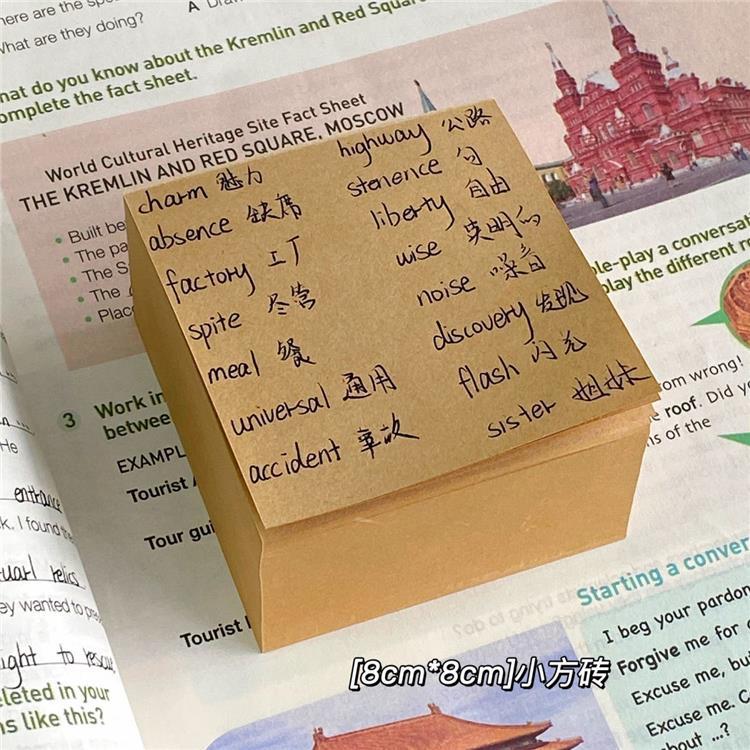 here are the spe
What are they doing?
A Draw
hat do you know about the Kremlin and Red Square
omplete the fact sheet.
World Cultural Heritage Site Fact Sheet
THE KREMLIN AND RED SQUARE, MOSCOW
Built be
The pa
The S
The
Plac
charm 魅力
absence 缺席
factory 工厂
spite 尽管
meal 餐
universal 通用
accident 事故
highway 公路
stenence 句
liberty 自由
wise 英明的
noise 噪音
discovery 发现
flash 闪光
sister 姐妹
ole-play a conversa
play the different r
om wrong!
roof. Did you
ns of the
3 Work in
betwee
EXAMPL
Tourist
Tour gui
Tourist
He
entrance
k. I found the
tuarl relics
ey wanted to pre
ight to rescue
leted in your
ns like this?
Starting a conver
I beg your pardon
Forgive me for
Excuse me, bu
Excuse me. C
about ...?
[8cm*8cm]小方砖